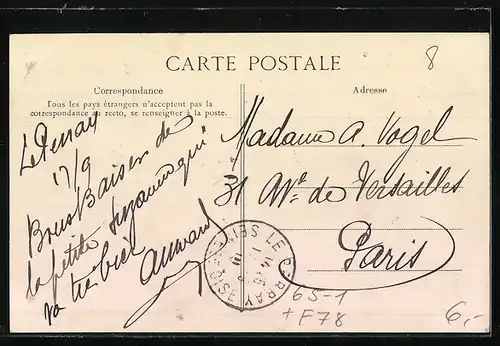 8
CARTE POSTALE
Correspondance
Tous les pays étrangers n'acceptent pas la
correspondance au recto, se renseigner à la poste.
Adresse
17/9
Bons Baisers de
la petite Suzanne qui
va très bien
Madame A. Vogel
31 Av.e de Versailles
Paris
LE PERRAY
SEINE
OISE
65-1
+F78
6,-